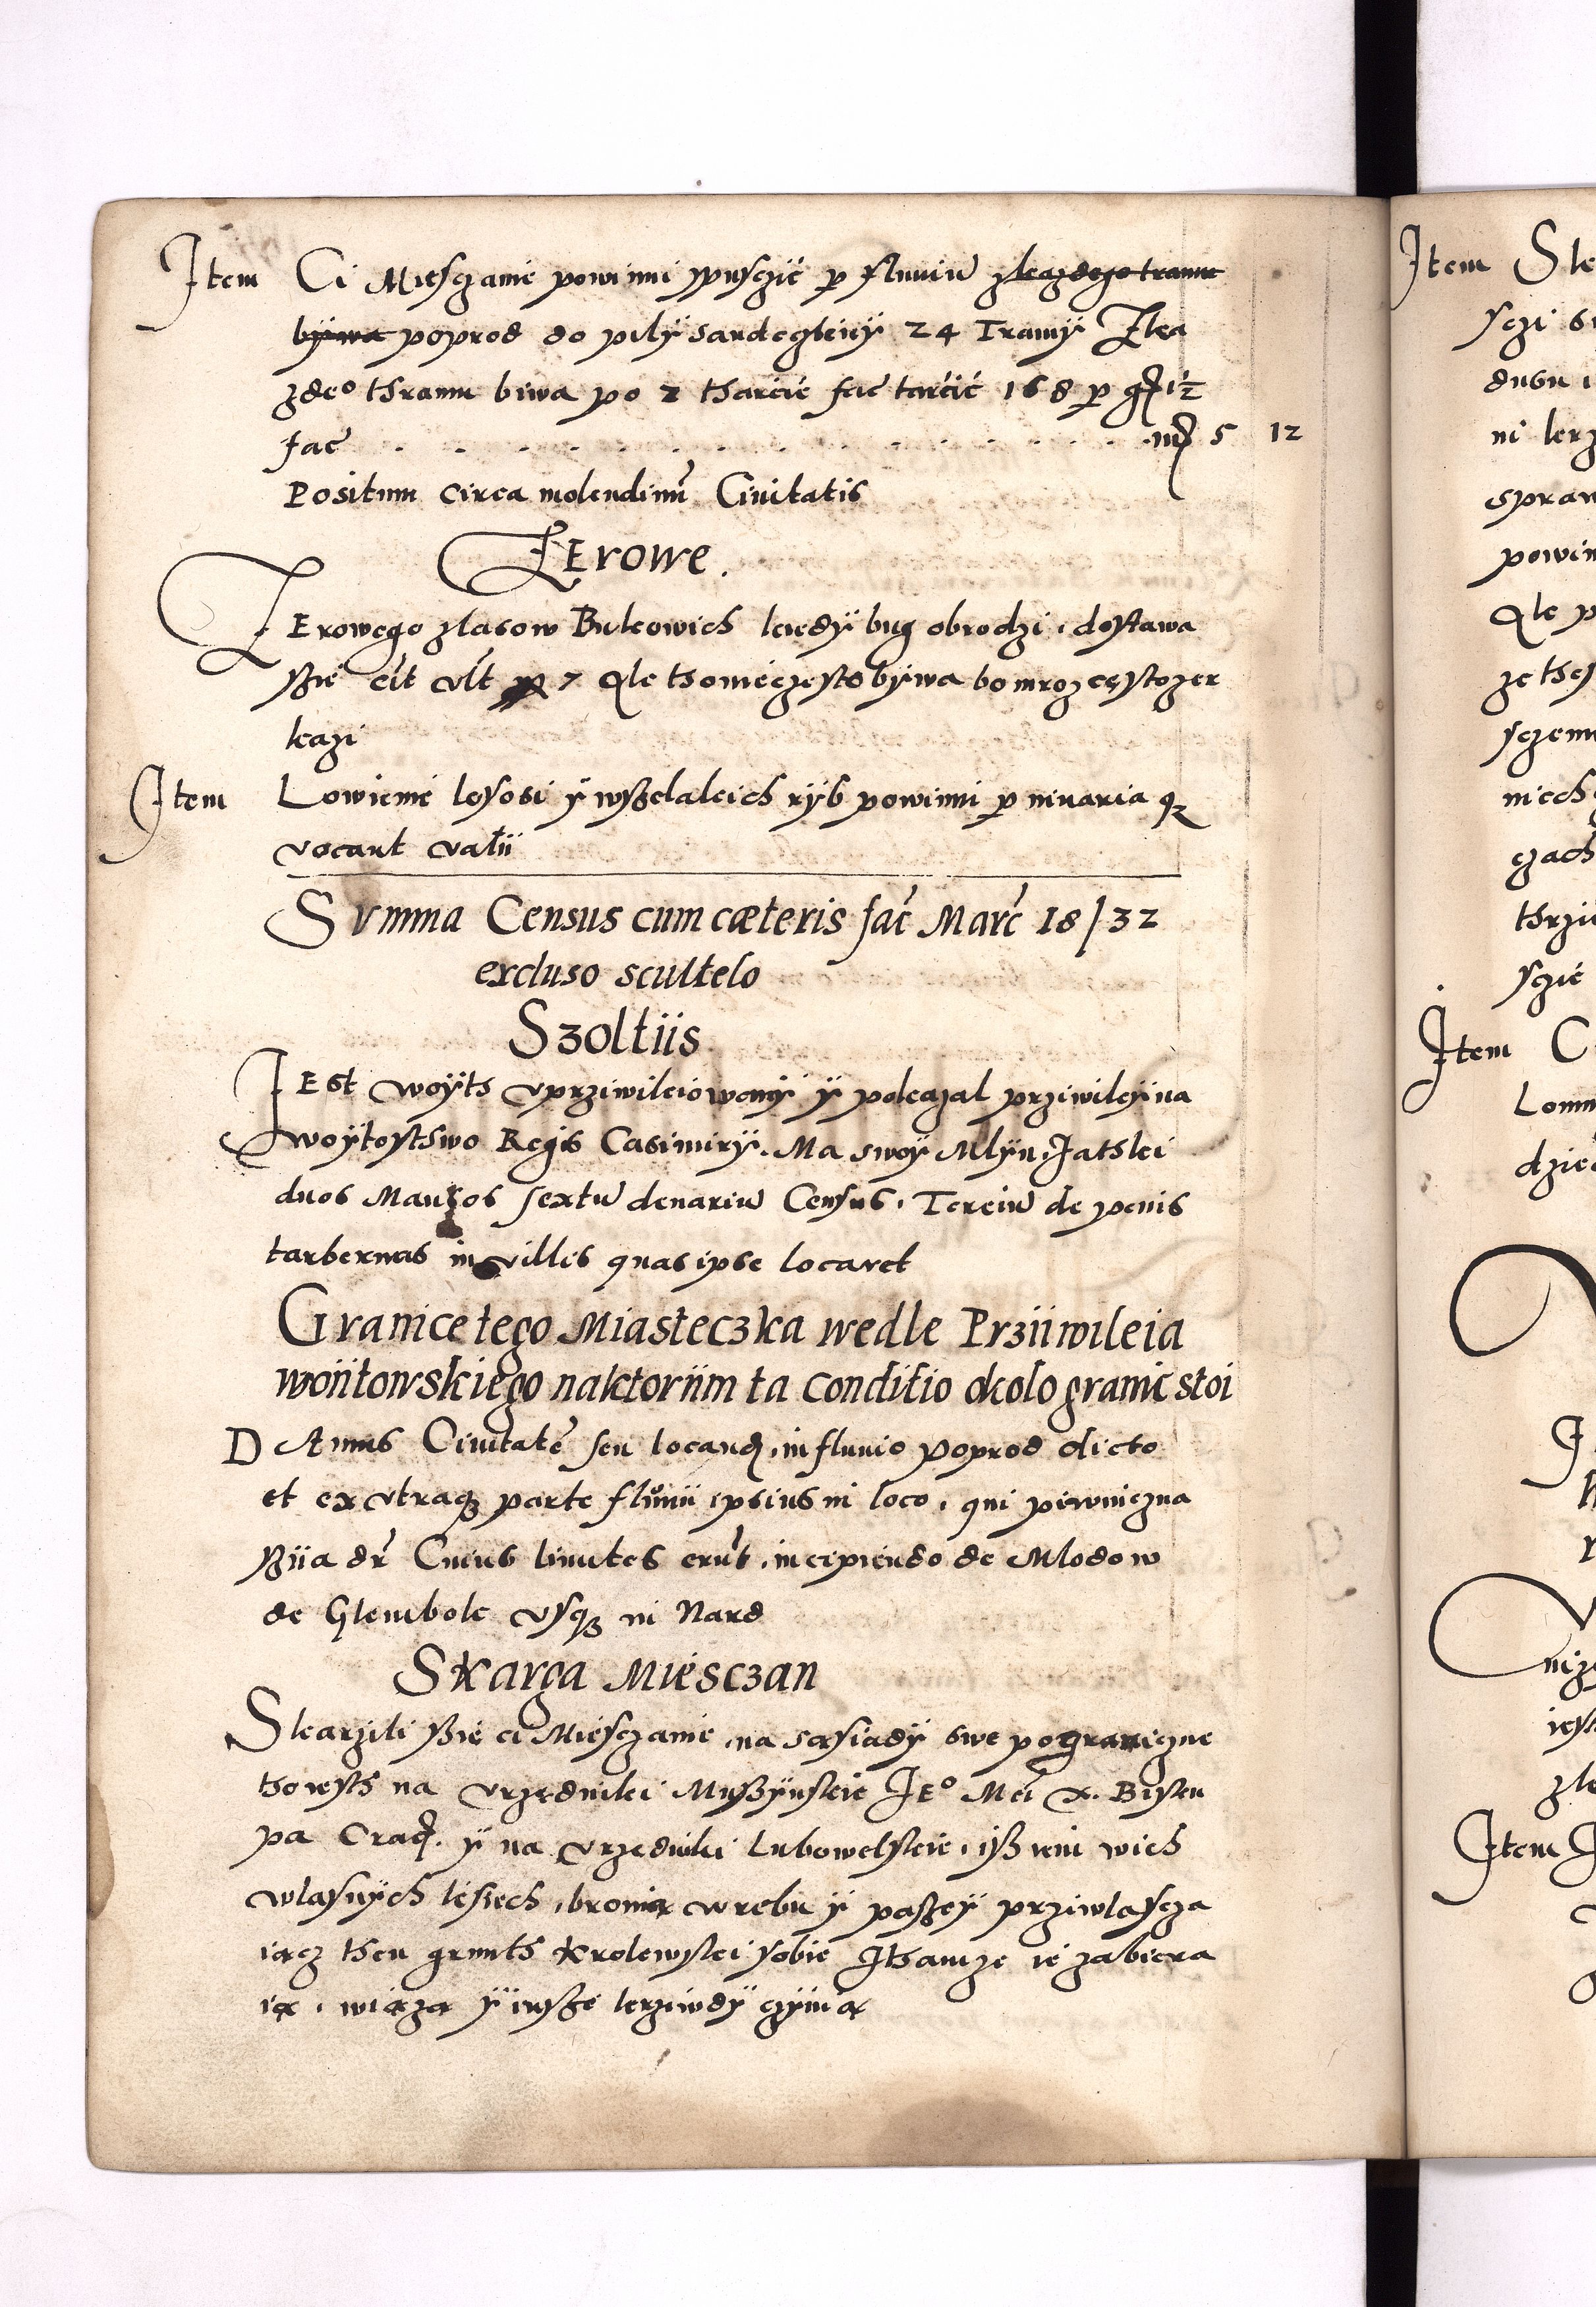 Item Ci Miesczanie powinni spusczić p fluuiū zkazdego tramu
bywa poprod do pily sandegkiey 24 Tramy Zka
zde° thramu biwa po 7 tharćic fac tarćić 168 p gꝵ 1½
fac . . . . . . . . . . . . . mꝵ 5 12
Positum circa molendinū Ciuitatis
ZErowe.
ZErowego zlasow Bukowich kiedÿ bug obrodzi, dostawa
ßie cīt vlt 7 Ale thonieczęsto bÿwa bo mroz cęsto zer
kazi
Item Lowienie lososi ÿ wßelakich rÿb powinni p niuaria q
vocant vatii
Svmma Census cum cæteris fać Marć 18/32
excluso scultelo
Szoltiis
JEst woÿth vprziwileiowanÿ ÿ pokazal prziwileÿ na
woÿtosthwo Regis Casimirÿ. Ma swoÿ Mlÿn, Jathki
duos Mansos sextū denariū Census, Terciū de penis
tarbernas in villis quas ipse locaret
Granice tego Miasteczka wedle Prziiwileia
woiitowskiego naktoriim ta conditio okolo granic stoi
DAmus Ciuitatē seu locandꝵ, in fluuio poprod dicto
et ex vtraqꝫ parte fluuii ipsius in loco, qui piwniczna
ßiia dr̄ Cuius limites erūt, incipiendo de Mlodow
de Glembole vsqꝫ in Nard
Skarga Miesczan
Skarzili ßie ci Miesczanie, na sąsiadÿ swe pograniczne
tho iesth na vrzędniki Mußÿnskie JE° Mći X. Bisku
pa Cracꝵ. ÿ na vrzędniki Lubowelskie, iß iem wich
wlasnÿch lesiech, bronią wrębu ÿ paßeÿ prziwlascza
iącz then grunth krolewski sobie Ithamze ie zabiera
ią, wiążą ÿ inße krziwdÿ czÿnią